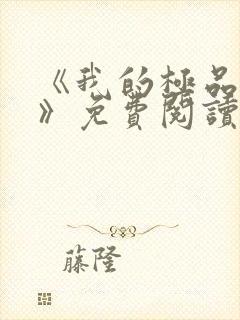 《我的極品
》免費閱讀
藤隆